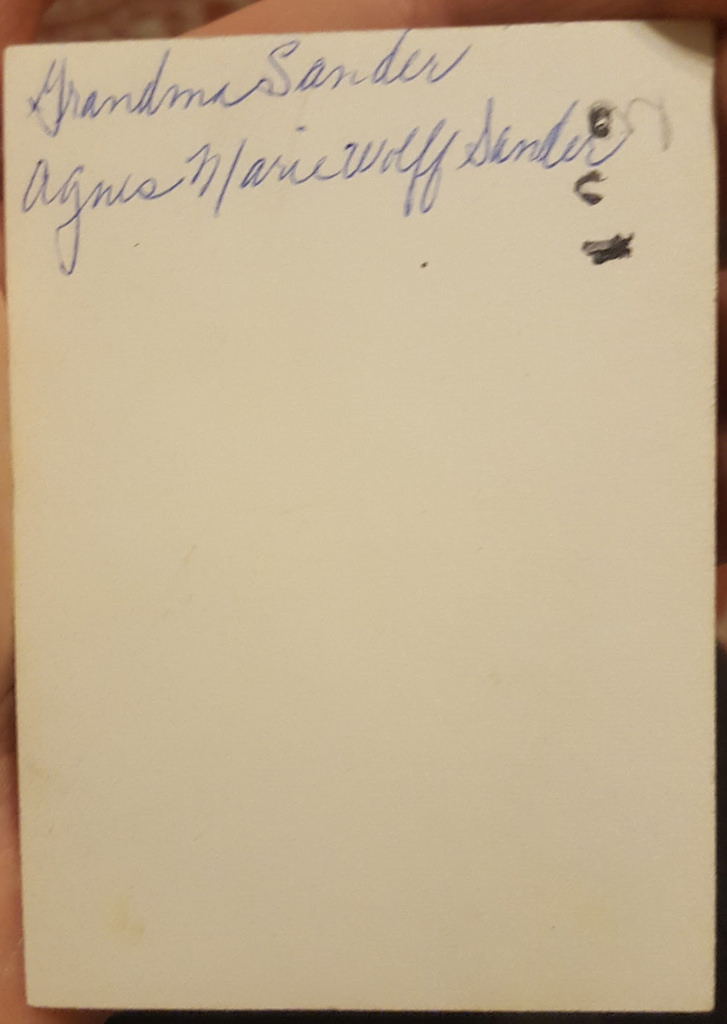 Grandma Sander
Agnes Marie Wolff Sander